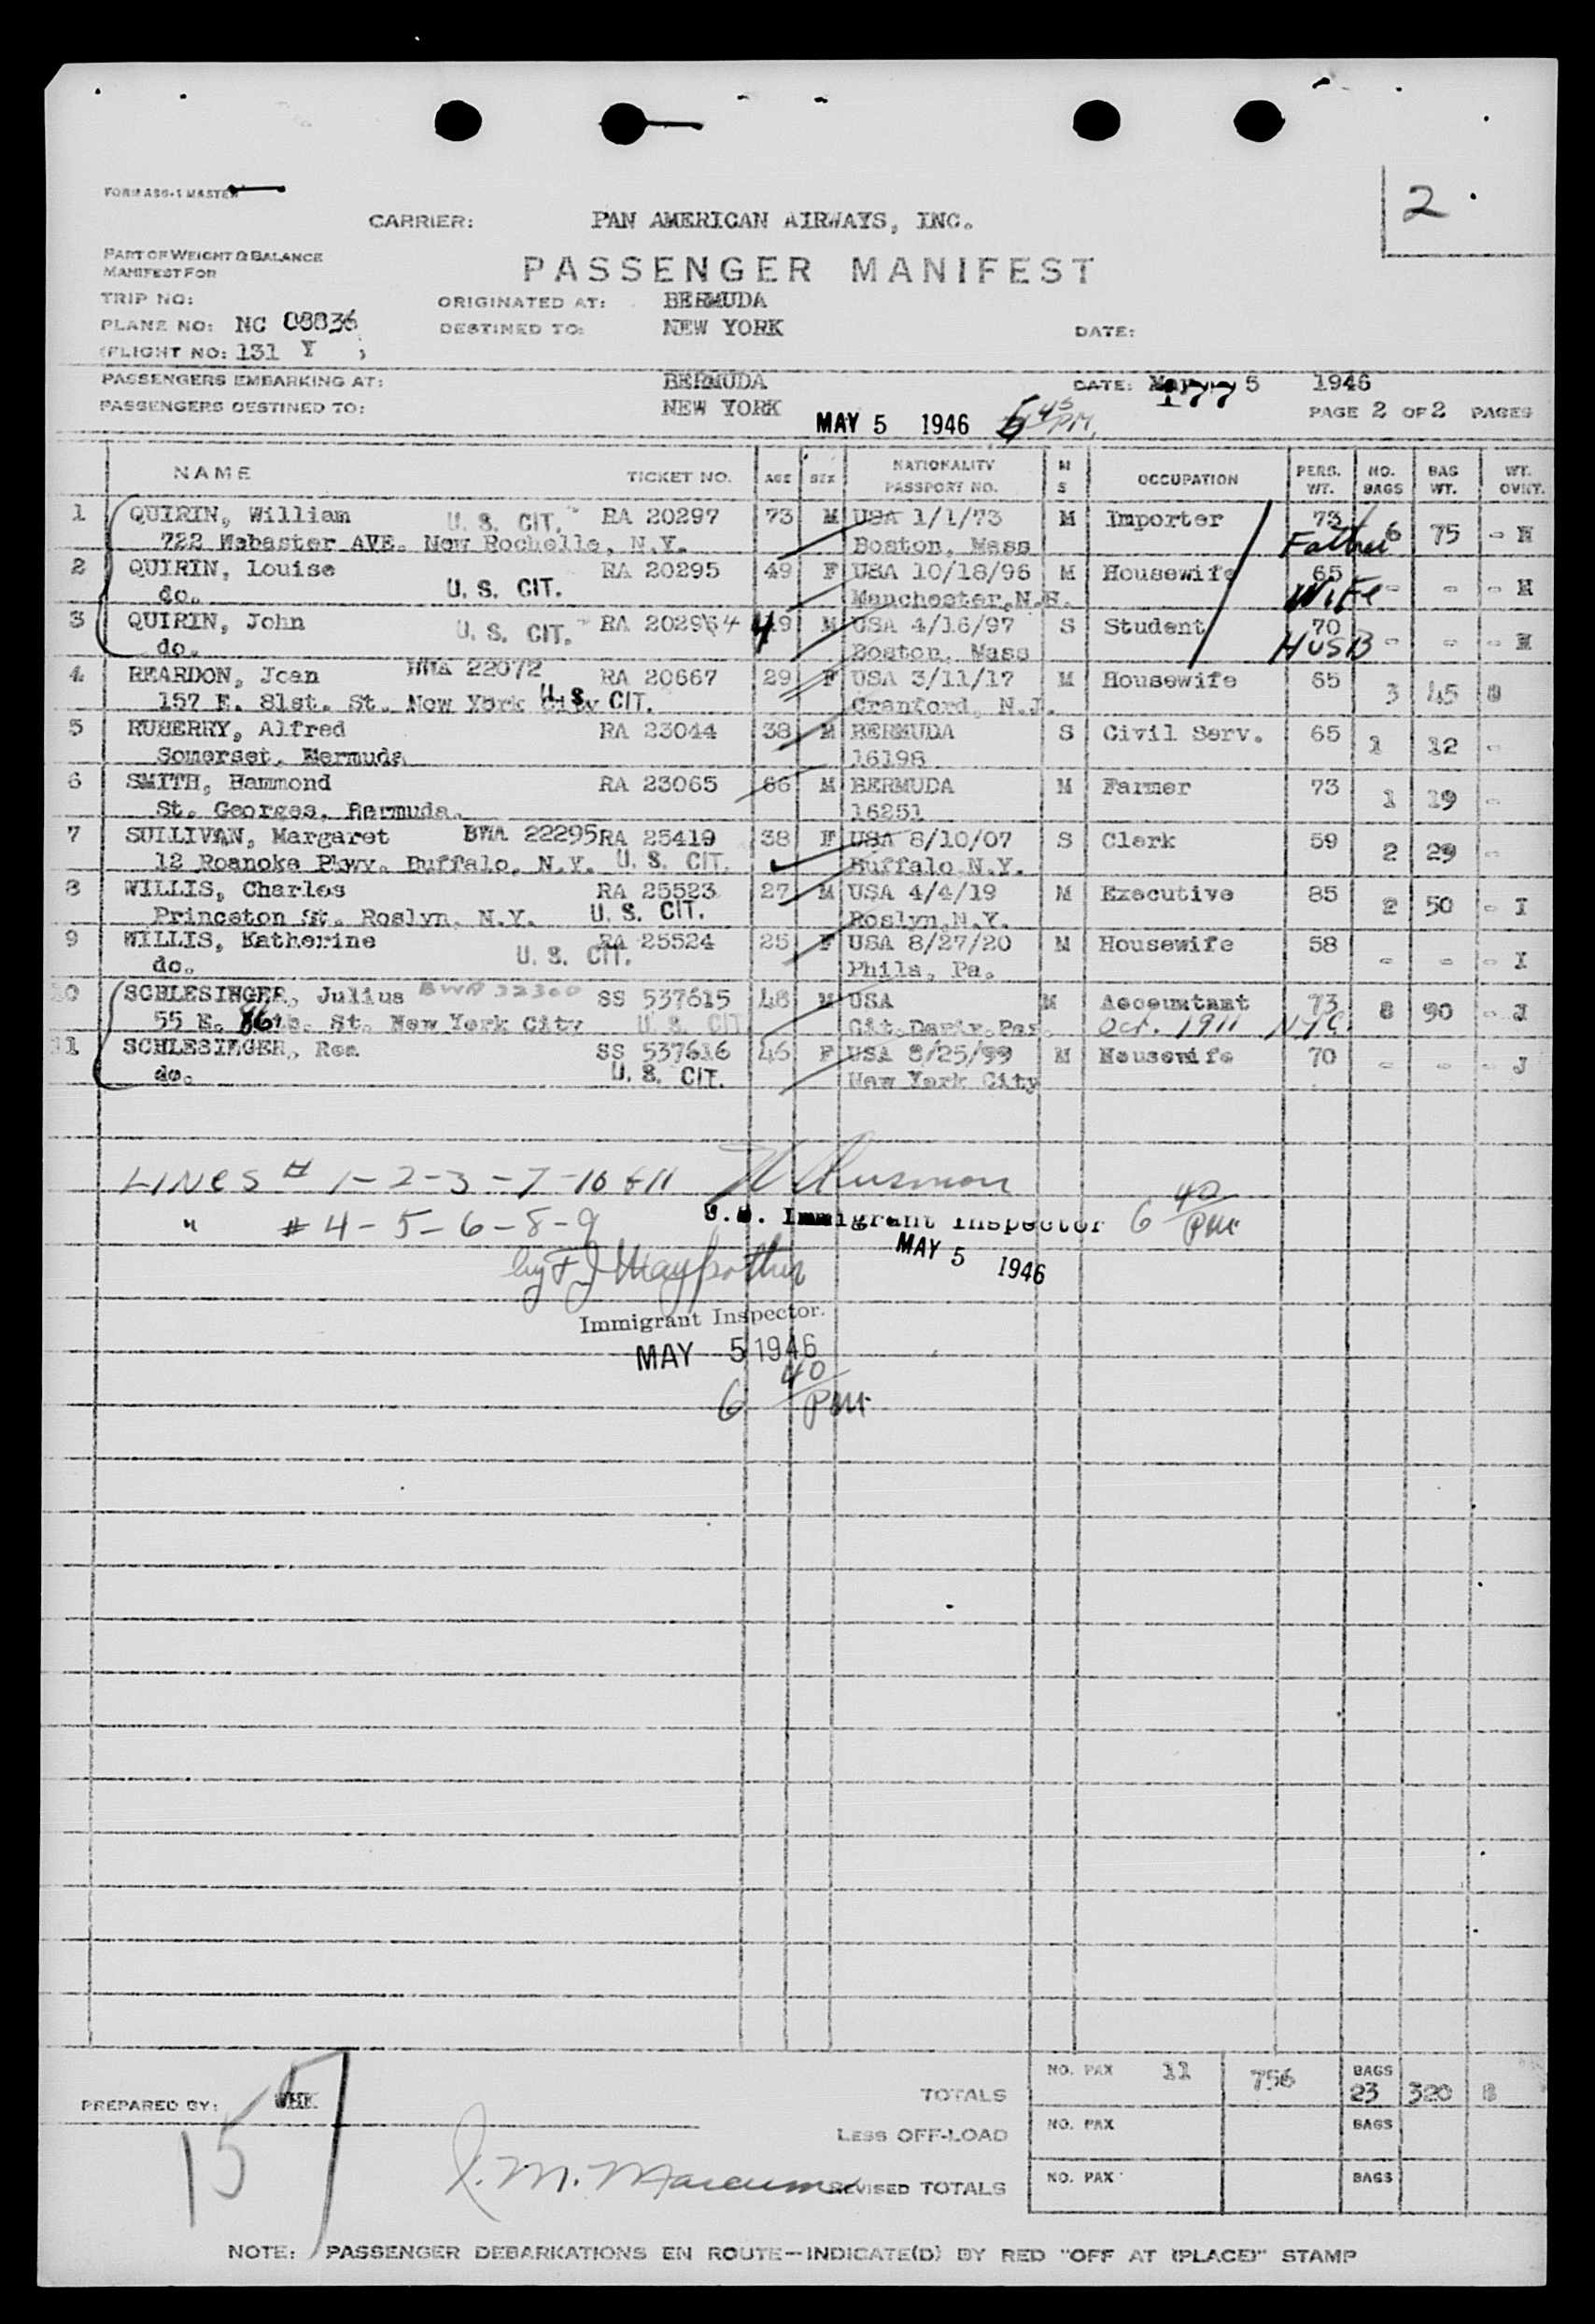 FORM AS6-1 MASTER
2
CARRIER: PAN AMERICAN AIRWAYS, INC.
PART OF WEIGHT & BALANCE
MANIFEST FOR
PASSENGER MANIFEST
TRIP NO: ORIGINATED AT: BERMUDA
PLANE NO: NC 88836 DESTINED TO: NEW YORK DATE:
(FLIGHT NO: 131 Y )
PASSENGERS EMBARKING AT: BERMUDA DATE: May 5 1946
177
PASSENGERS DESTINED TO: NEW YORK PAGE 2 OF 2 PAGES
MAY 5 1946 5 45 PM.
NAME TICKET NO. AGE SEX NATIONALITY PASSPORT NO. M S OCCUPATION PERS. WT. NO. BAGS BAG WT. WT. OVWT.
1 QUIRIN, William U. S. CIT. RA 20297 73 M USA 1/1/73 M Importer 73 6 75 - H
722 Webaster AVE. New Rochelle, N.Y. Boston, Mass Father
2 QUIRIN, Louise U. S. CIT. RA 20295 49 F USA 10/18/96 M Housewife 65 - - - H
do. Manchester, N.H. Wife
3 QUIRIN, John U. S. CIT. RA 20294 49 M USA 4/16/97 S Student 70 - - - H
do. Boston, Mass HUSB
4 REARDON, Jean BWA 22072 RA 20667 29 F USA 3/11/17 M Housewife 65 3 45 8
157 E. 81st. St. New York City U. S. CIT. Cranford, N.J.
5 RUBERRY, Alfred RA 23044 38 M BERMUDA S Civil Serv. 65 1 12 -
Somerset, Bermuda 16198
6 SMITH, Hammond RA 23065 66 M BERMUDA M Farmer 73 1 19 -
St. Georges, Bermuda. 16251
7 SULLIVAN, Margaret BWA 22295 RA 25419 38 F USA 8/10/07 S Clerk 59 2 29 -
12 Roanoke Pkwy. Buffalo, N.Y. U. S. CIT. Buffalo N.Y.
8 WILLIS, Charles RA 25523 27 M USA 4/4/19 M Executive 85 2 50 - I
Princeton St. Roslyn, N.Y. U. S. CIT. Roslyn, N.Y.
9 WILLIS, Katherine RA 25524 25 F USA 8/27/20 M Housewife 58 - - - I
do. U. S. CIT. Phila, Pa.
10 SCHLESINGER, Julius BWA 32300 SS 537615 48 M USA M Accountant 73 8 90 - J
55 E. 86th. St. New York City U. S. CIT. Cit. Deriv. Par. Oct. 1911 NYC.
11 SCHLESINGER, Rea SS 537616 46 F USA 8/25/99 M Housewife 70 - - - J
do. U. S. CIT. New York City
LINES # 1-2-3-7-10 & 11
U.S. Immigrant Inspector 6 40 PM
" # 4-5-6-8-9
MAY 5 1946
by
Immigrant Inspector.
MAY 5 1946
6 40 PM
TOTALS NO. PAX 11 756 BAGS 23 320 8
PREPARED BY: WHK
LESS OFF-LOAD NO. PAX BAGS
15
J. M. Marcum
REVISED TOTALS NO. PAX BAGS
NOTE: PASSENGER DEBARKATIONS EN ROUTE—INDICATE(D) BY RED "OFF AT (PLACE)" STAMP